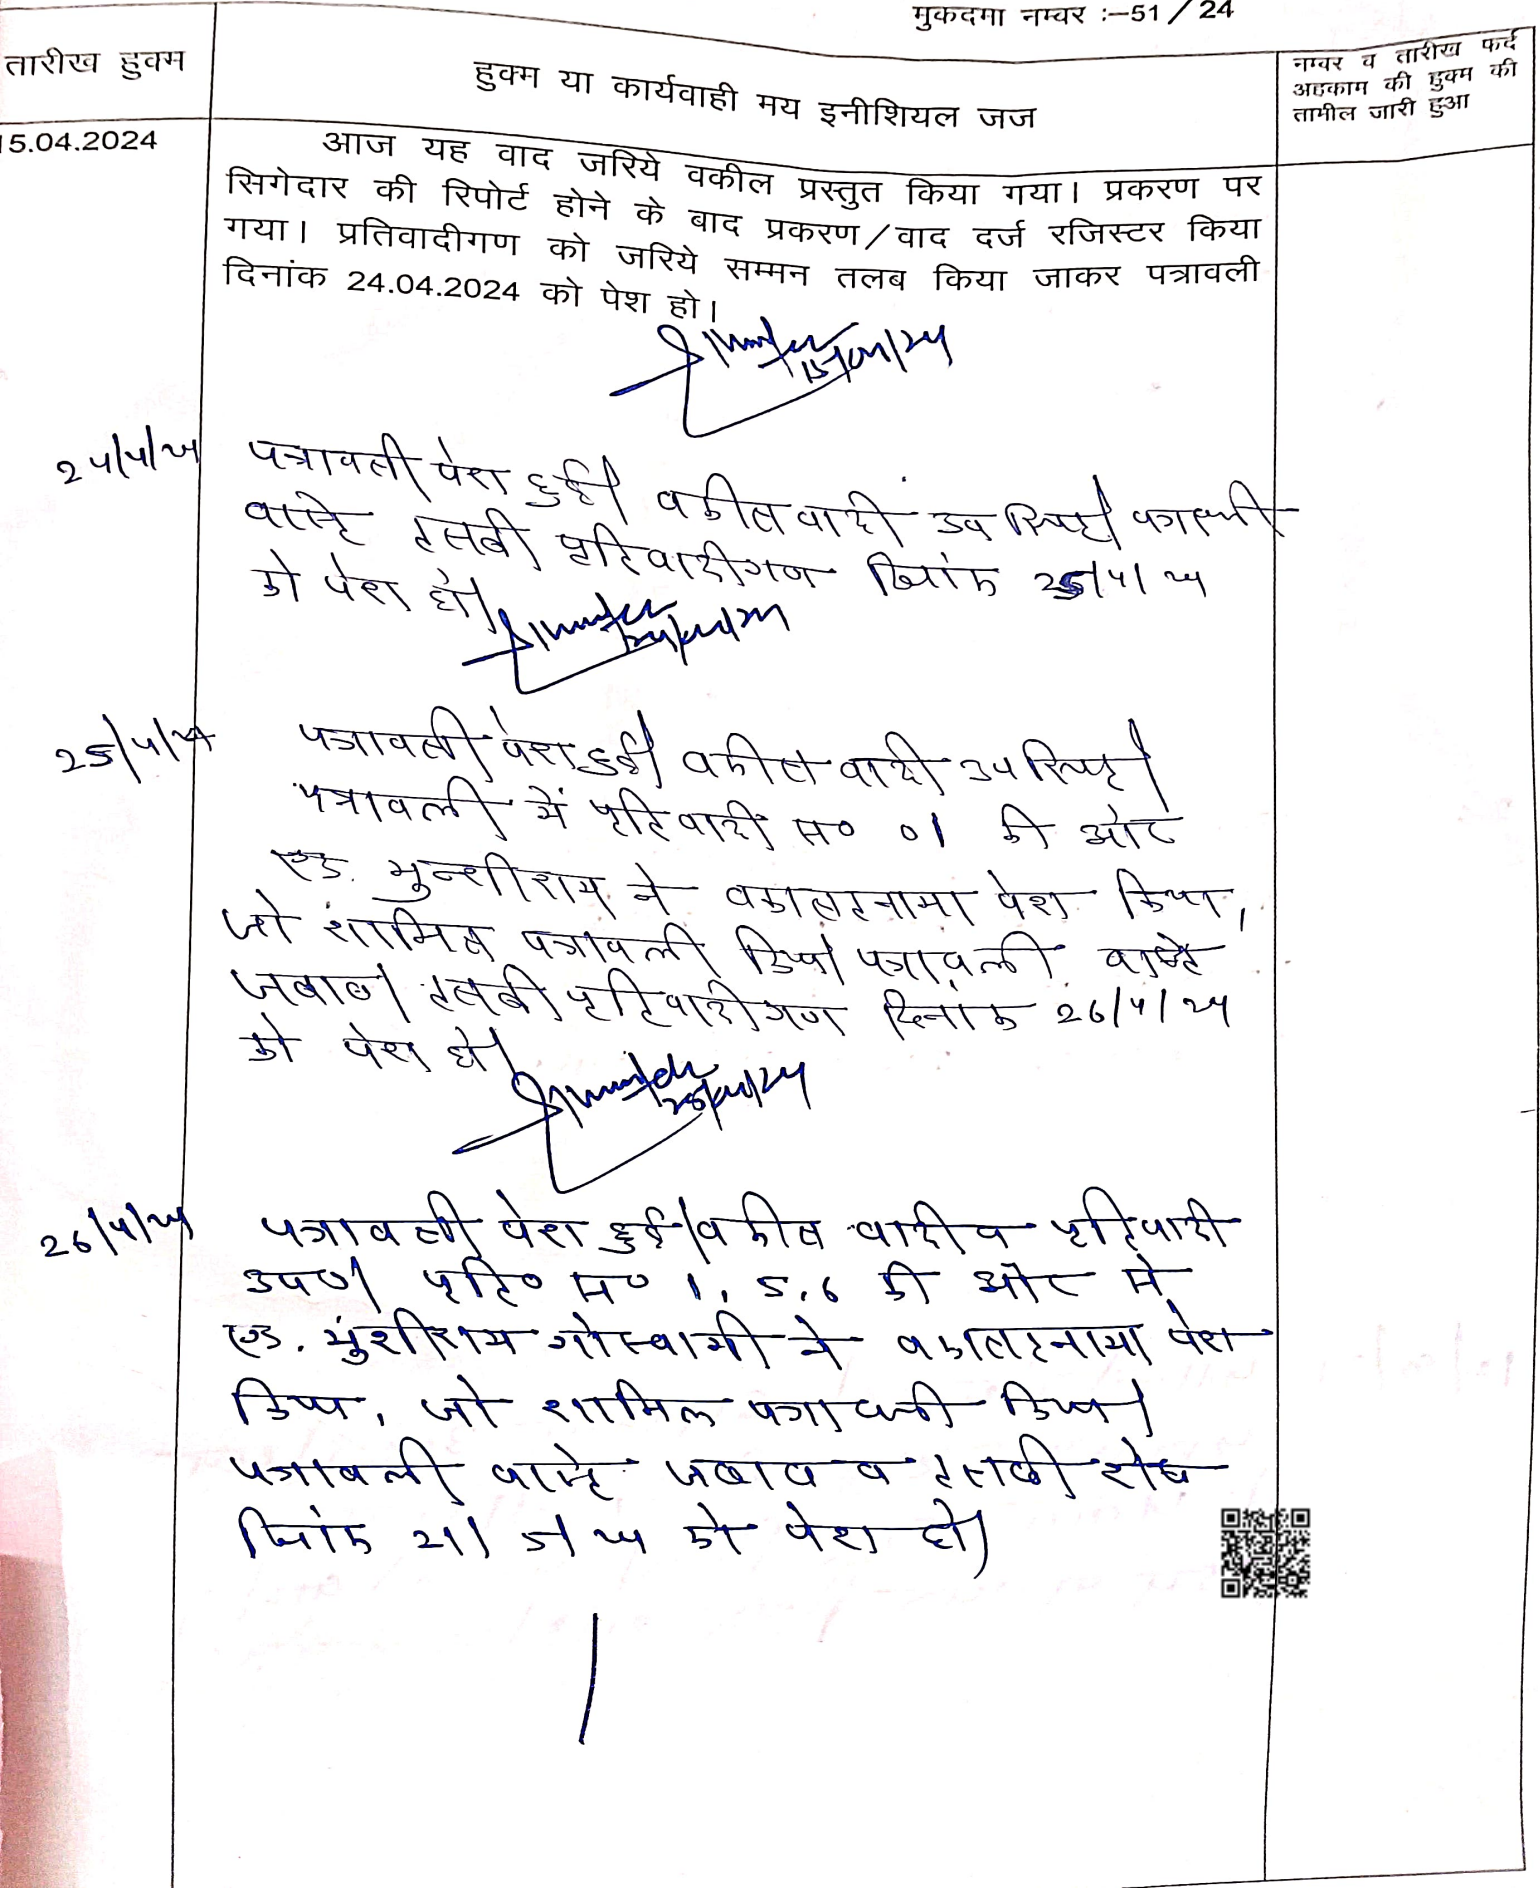 मुकदमा नम्वर :–51/24
तारीख हुक्म
हुक्म या कार्यवाही मय इनीशियल जज
नम्वर व तारीख फर्द
अहकाम की हुक्म की
तामील जारी हुआ
15.04.2024
आज यह वाद जरिये वकील प्रस्तुत किया गया। प्रकरण पर
सिगेदार की रिपोर्ट होने के बाद प्रकरण/वाद दर्ज रजिस्टर किया
गया। प्रतिवादीगण को जरिये सम्मन तलब किया जाकर पत्रावली
दिनांक 24.04.2024 को पेश हो।
15/04/24
24/4/24 पत्रावली पेश हुई। वकील वादी उपस्थित। पत्रावली
वास्ते तलबी प्रतिवादीगण दिनांक 25/4/24
को पेश हो।
24/04/24
25/4/24 पत्रावली पेश हुई। वकील वादी उपस्थित।
पत्रावली में प्रतिवादी स० 01 की ओर
एड. मुन्शीराम ने वकालतनामा पेश किया,
जो शामिल पत्रावली किया। पत्रावली वास्ते
जबाब/तलबी प्रतिवादीगण दिनांक 26/4/24
को पेश हो।
25/04/24
26/4/24 पत्रावली पेश हुई। वकील वादी व प्रतिवादी
उप०। प्रति० स० 1, 5, 6 की ओर से
एड. मुंशीराम गोस्वामी ने वकालतनामा पेश
किया, जो शामिल पत्रावली किया।
पत्रावली वास्ते जबाव व तलबी शेष
दिनांक 21/5/24 को पेश हो।